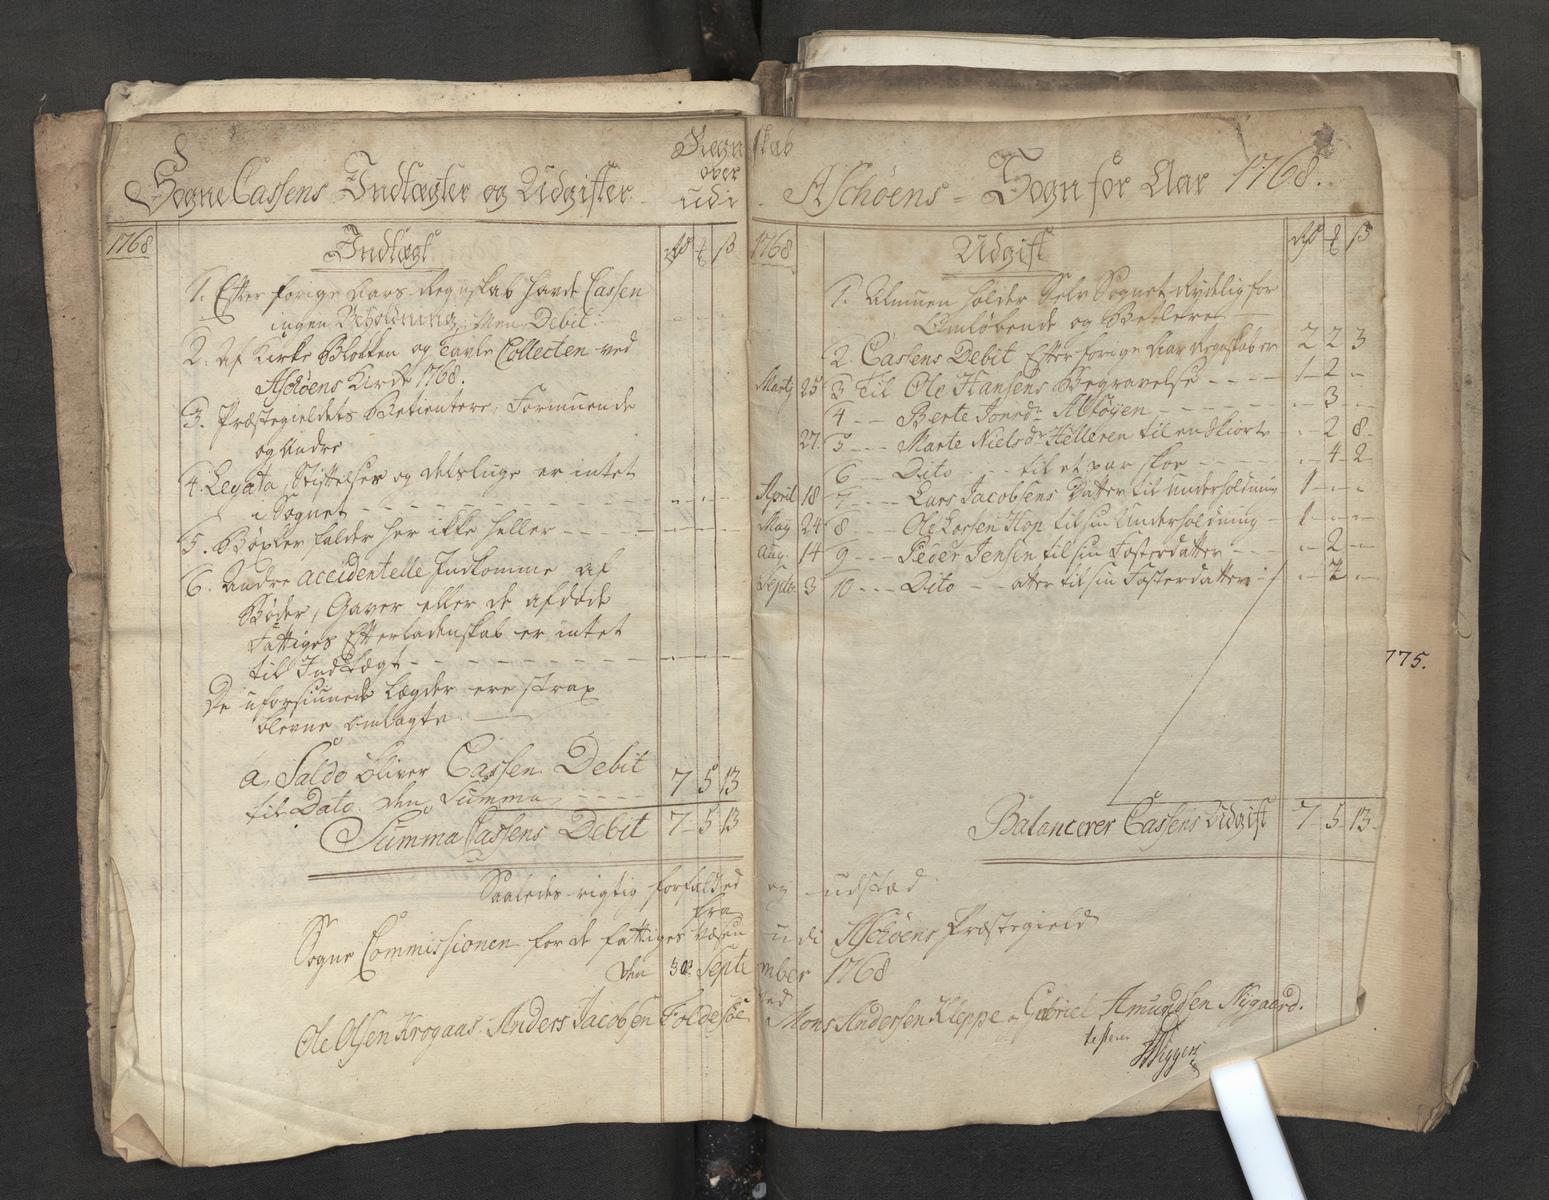 Regnskab
over
Sogne Cassens Indtægter og Udgifter udi Aschöens Sogn for Aar 1768.
1768 Indtægt rd ß
1. Efter forige Aars Regnskab havde Cassen
ingen Beholdning. Men Debit.
2. af Kirke Blokken og Tavle Collecten ved
Aschöens Kirke 1768.
3. Præstegieldets Betientere, Formuende
og andre
4. Legata, Stiftelser og deslige er intet
i Sognet
5. Bøxler falder her ikke heller
6. Andre accidentelle Indkomme af
Bøder, Gaver eller de afdøde
Fattiges Efterladenskab er intet
til Indtægt
De uforsiunede Lægder ere strax
blevne ombragte
a Saldo bliver Cassen Debit
til Dato den Summa 7 5 13
Summa Cassens Debit 7 5 13
1768 Udgift rd ß
1. Almuen holder Selv Sognet Rydelig for
Omløbende og Betlere
2. Cassens Debit Efter forige Aar Regnskab er 2 2 3
Martj 25 3 Til Ole Hansens Begravelse 1 2
4 Berte Jonsdr Alstöyen 3
27 5 Marte Nielsdr Helleren til en Skiorte 2 8
6 Dito til et par skoe 4 2
April 18 7 Lars Jacobsens Datter til underholdning 1
May 24 8 Ole Larsen Hop til sin Underholdning 1
Aug. 14 9 Peder Jensen til sin Fosterdatter 2
Septr 3 10 Dito ater til sin Fosterdatter 2
Balancerer Cassens Udgift 7 5 13
775.
Saaledes rigtig forfatted og udstæd
fra
Sogne Commissionen for de fattiges Væsen udi Aschöens Præstegield
den 30 September 1768
Ole Olsen Krogaas. Anders Jacobsen Foldesöe Mons Andersen Kleppe Gabriel Amundsen Nygaard.
testerer
Wiggers